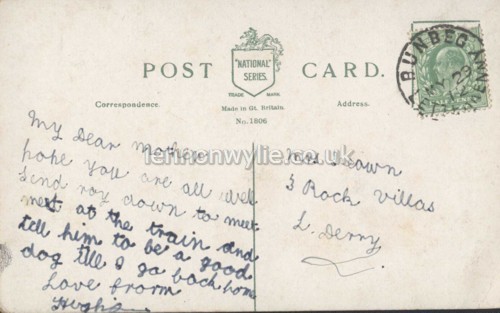 POST CARD.
"NATIONAL" SERIES.
TRADE MARK.
Correspondence.
Made in Gt. Britain.
Address.
No. 1806
BUNBEG
MY 29
LETTERKENNY
lennonwylie.co.uk
My Dear Mother
hope you are all well
send roy down to meet
meet at the train and
tell him to be a good
dog till I go back home
Love from
Hugh
Mrs.
3 Rock Villas
L. Derry